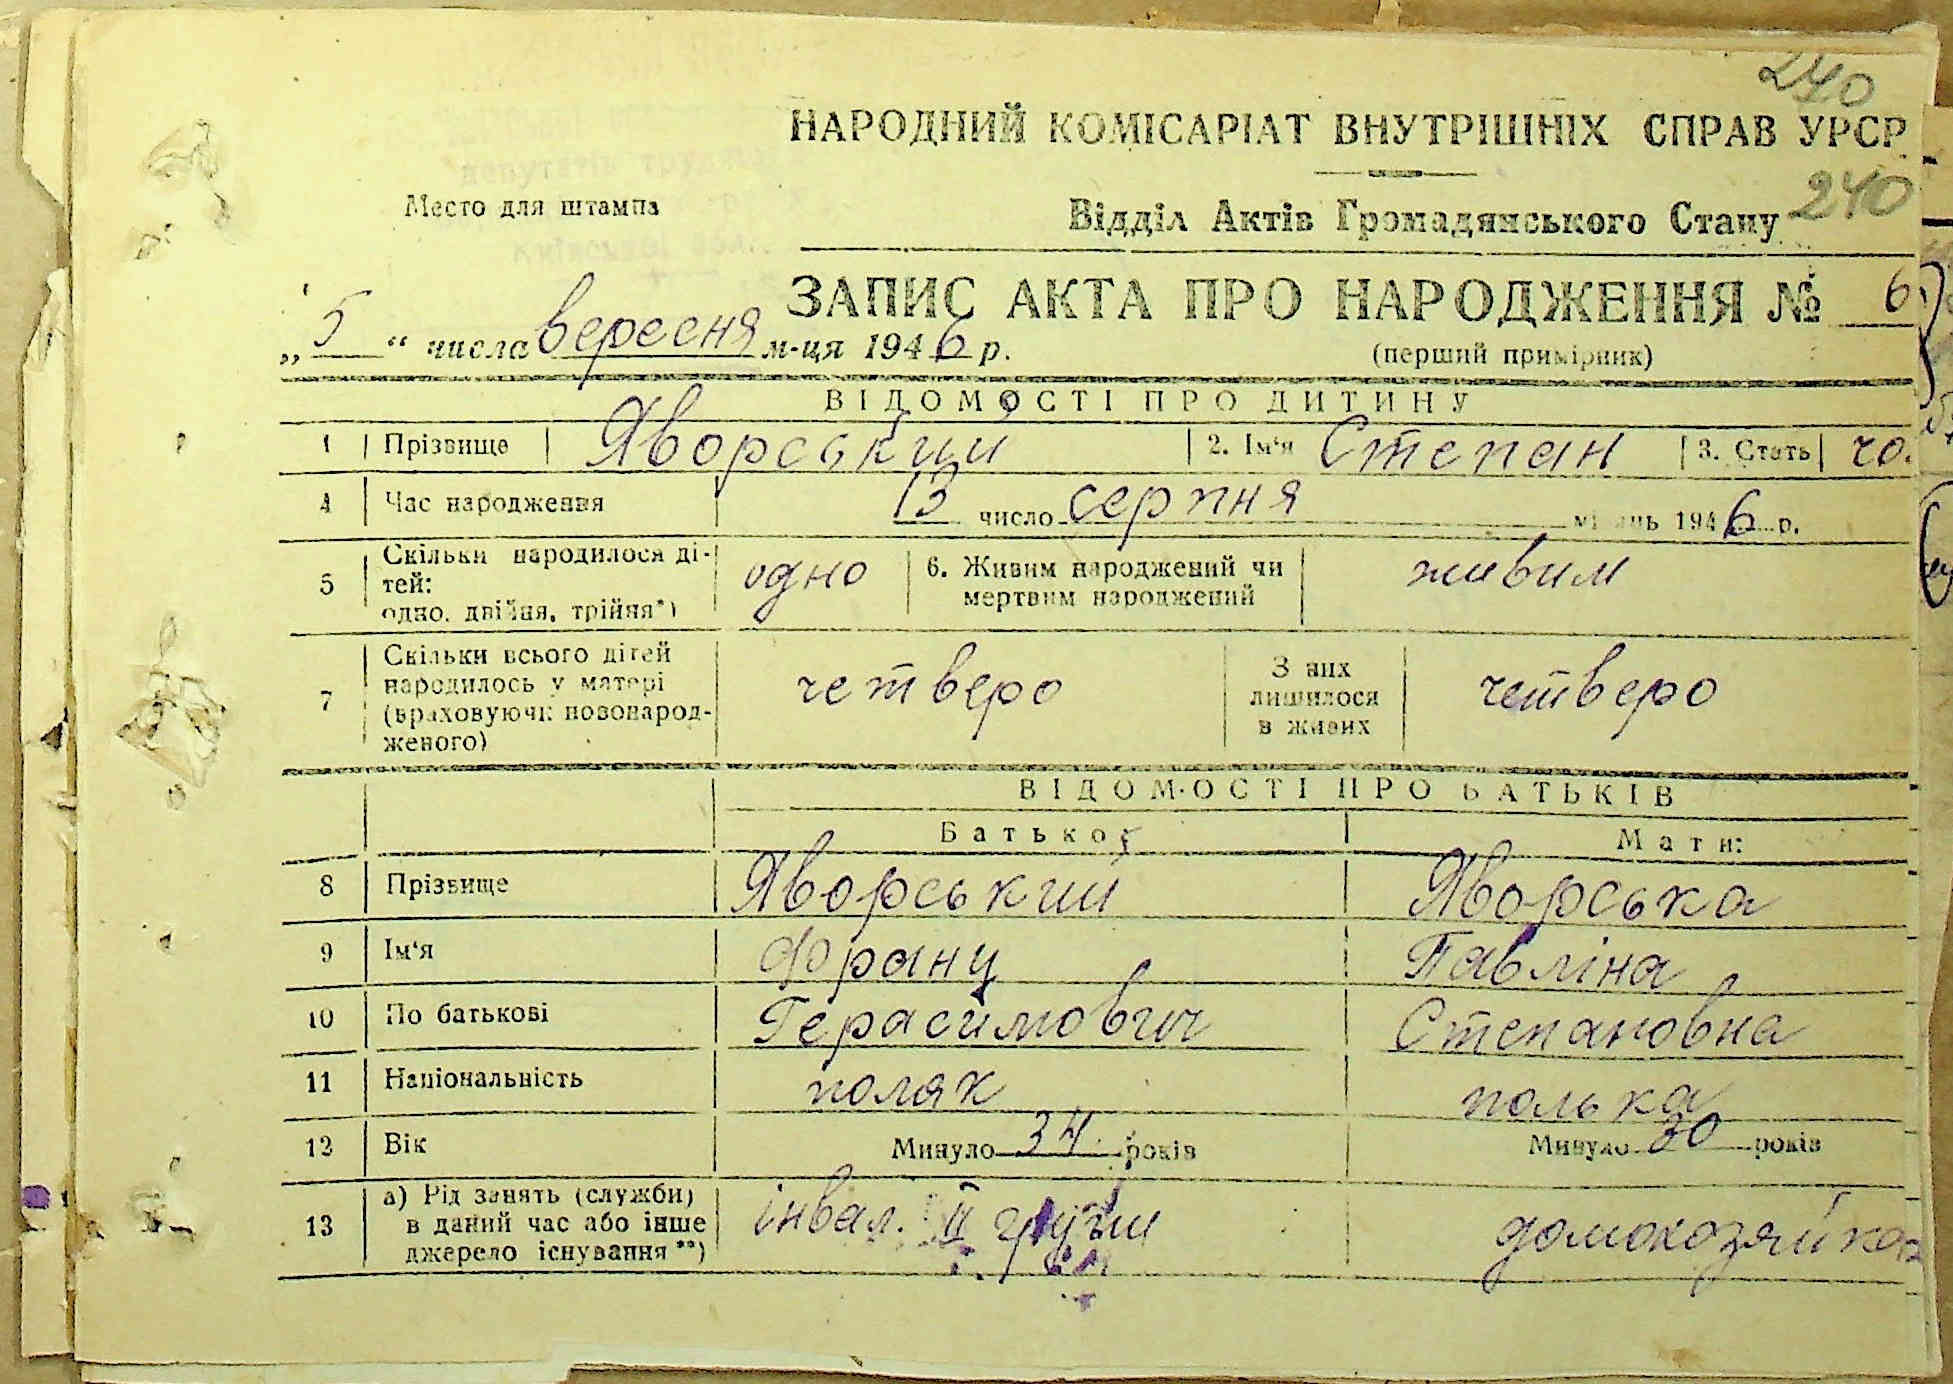 270
НАРОДНИЙ КОМІСАРІАТ ВНУТРІШНІХ СПРАВ УРСР
240
Место для штампа
Відділ Актів Громадянського Стану
ЗАПИС АКТА ПРО НАРОДЖЕННЯ № 6
„5“ числа вересня м-ця 1946 р.
(перший примірник)
ВІДОМОСТІ ПРО ДИТИНУ
1 Прізвище Яворський 2. Ім'я Степан 3. Стать чо.
4 Час народження 13 число серпня місяць 1946 р.
5 Скільки народилося ді-
тей:
одно, двійня, трійня*)
одно
6. Живим народжений чи
мертвим народжений
живим
7 Скільки всього дітей
народилось у матері
(враховуючи новонарод-
женого)
четверо
З них
лишилося
в живих
четверо
ВІДОМОСТІ ПРО БАТЬКІВ
Батько: Мати:
8 Прізвище Яворський Яворська
9 Ім'я Франц Павліна
10 По батькові Герасимович Степановна
11 Національність поляк полька
12 Вік Минуло 34 років Минуло 30 років
13 а) Рід занять (служби)
в даний час або інше
джерело існування**)
інвал. ІІ групи
домохозяйка